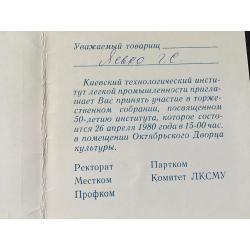 Уважаемый товарищ
Левко Г С
Киевский технологический инсти-
тут легкой промышленности пригла-
шает Вас принять участие в торже-
ственном собрании, посвященном
50-летию института, которое состо-
ится 26 апреля 1980 года в 15-00 час.
в помещении Октябрьского Дворца
культуры.
Ректорат Партком
Местком Комитет ЛКСМУ
Профком